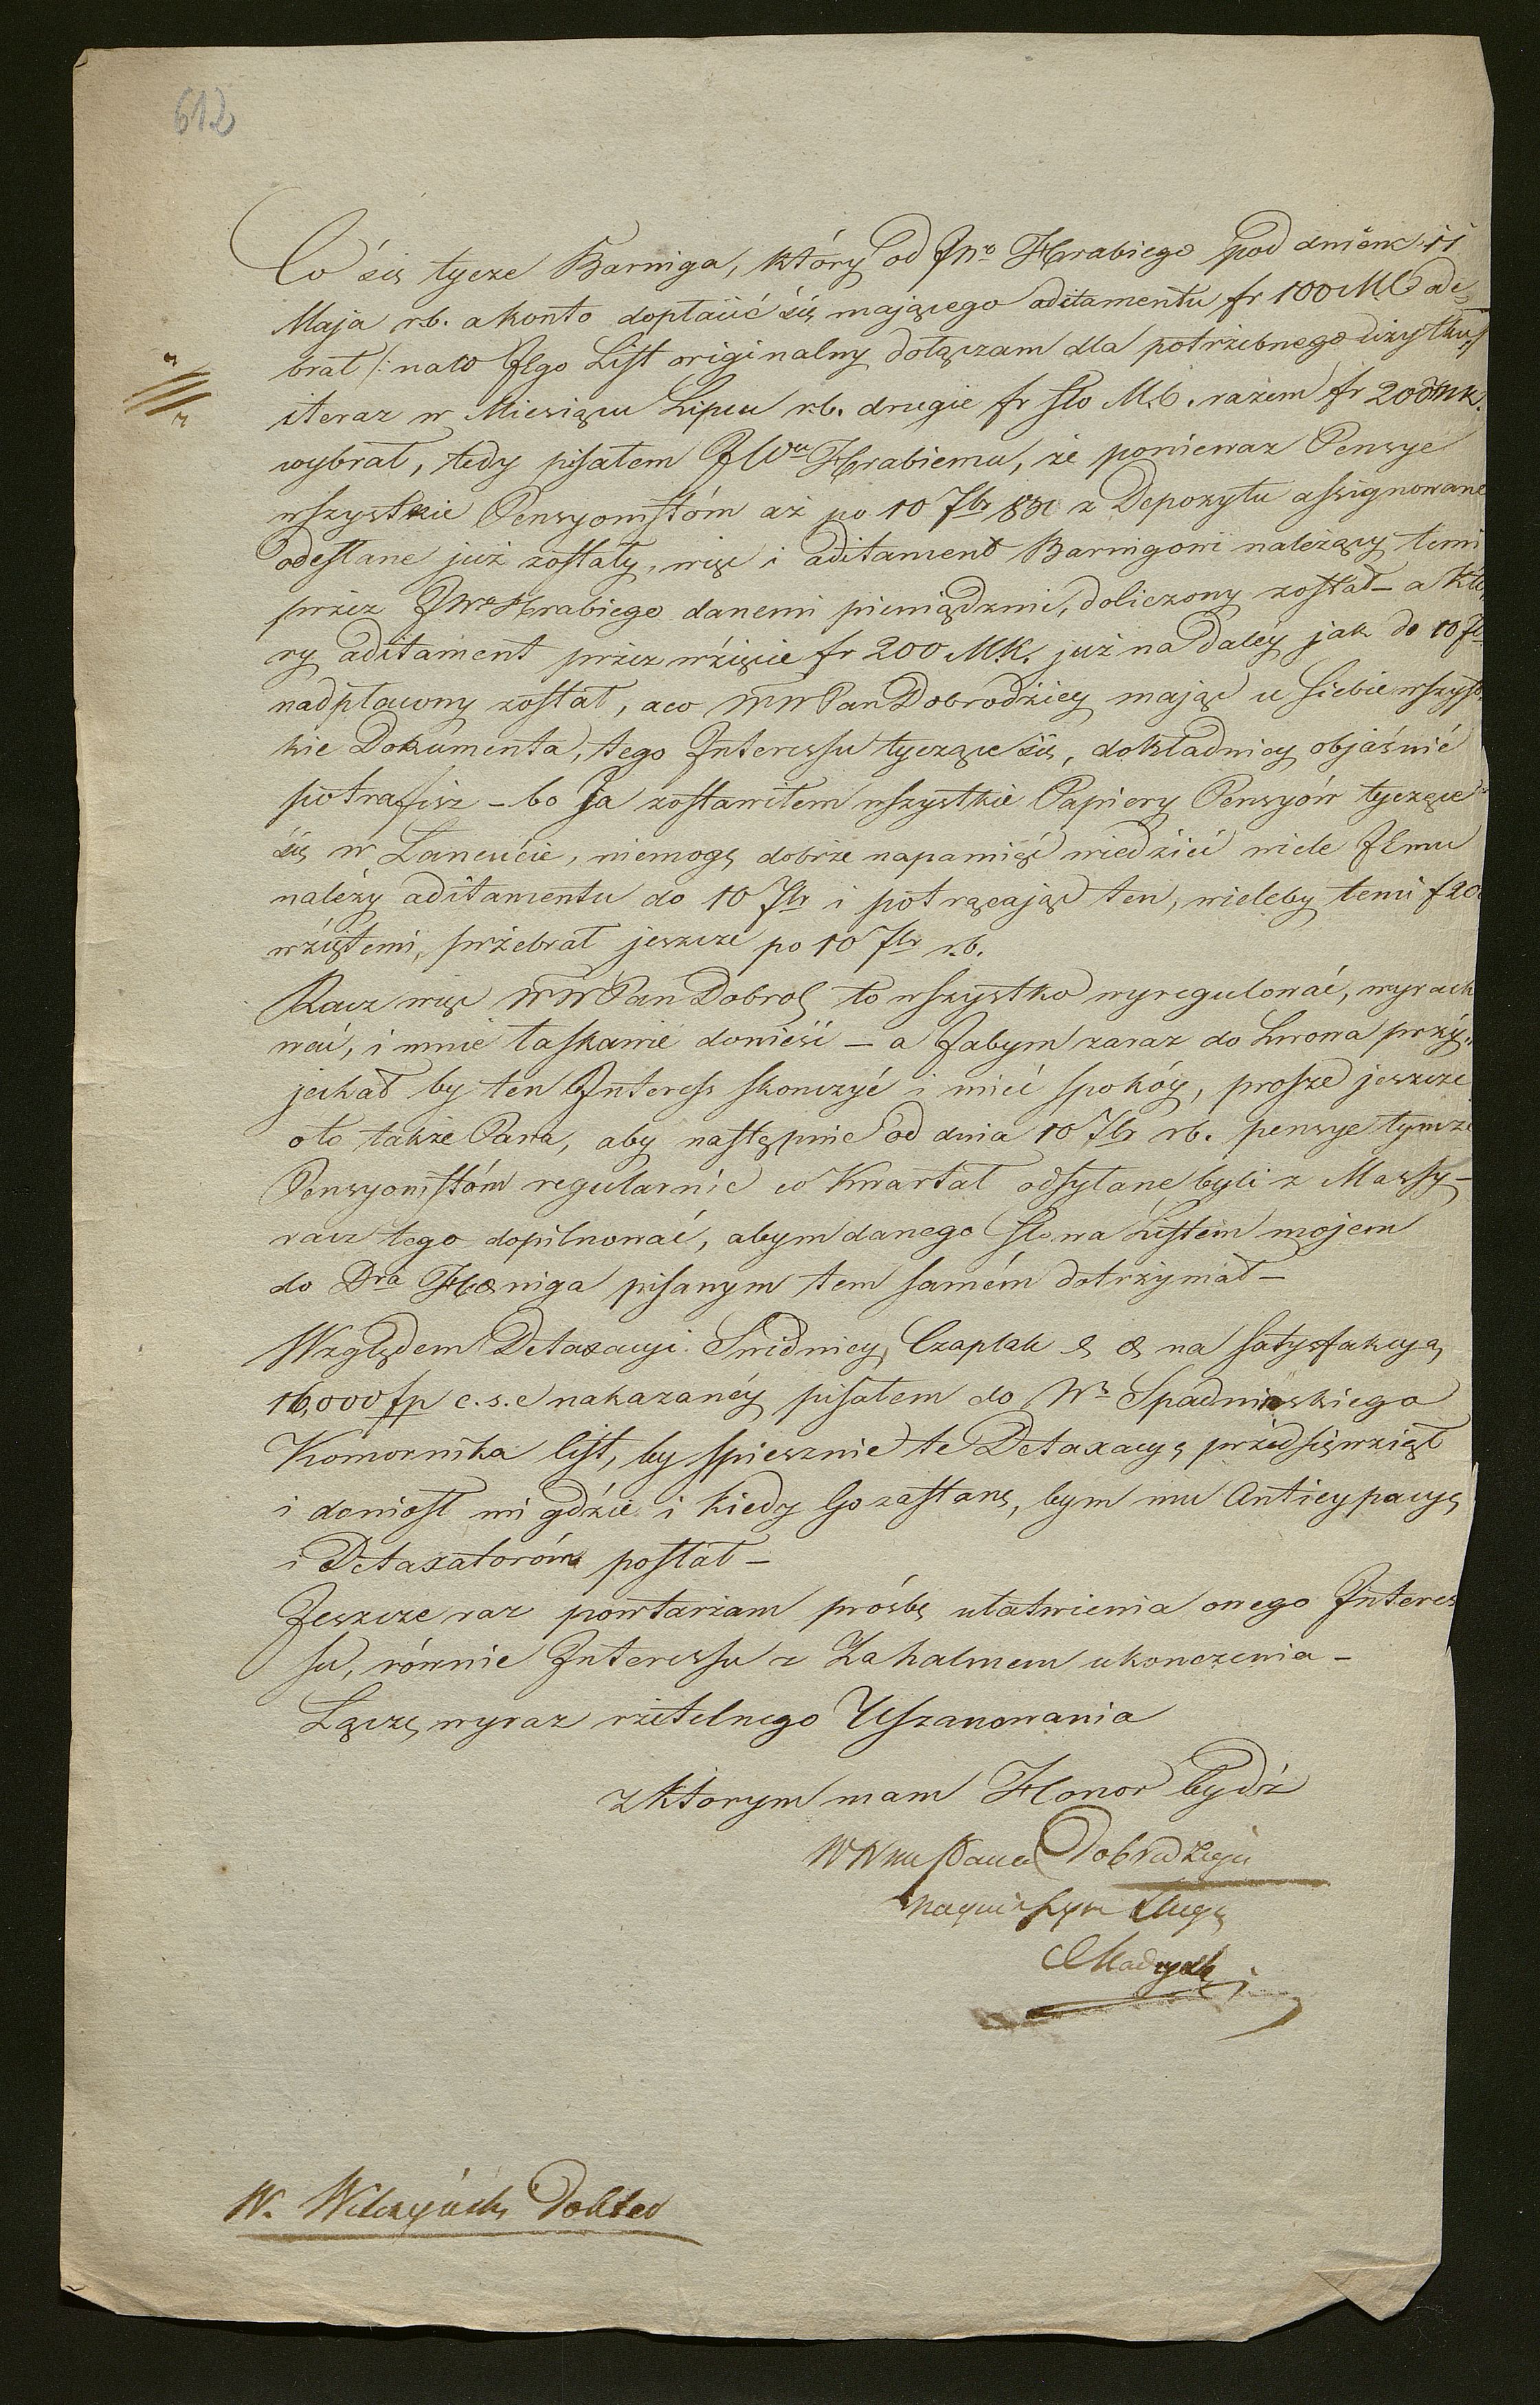 612
Co się tycze Barniga, który od JWo Hrabiego pod dniem 11
Maja r.b. akonto dopłaćić się mającego aditamentu fr 100 MC ode„
brał /: na to JEgo List originalny dołączam dla potrzebnego użytku :/
i teraz w Miesiącu Lipcu r.b. drugie fr sto M.C. razem fr 200 mk.
wybrał, tedy pisałem JWu Hrabiemu, że ponieważ Pensye
wszystkie Pensyonistóm aż po 10 7br z Depozytu assignowane
odesłane już zostały, więc i aditament Barnigowi należący temi
przez JWo Hrabiego danemi pieniądzmi, doliczony został – a któ„
ry aditament przez wzięcie fr 200 M.K. już na daley jak do 10 7br
nadpłacony został, a co WWPan Dobrodziey mając u siebie wszyst„
kie Dokumenta, tego Interessu tyczące się, dokładniey objaśnić
potrafisz – bo Ja zostawiłem wszystkie Papiery Pensyów tyczące
się w Łancucie, niemogę dobrze napamięć wiedzieć wiele JEmu
należy aditamentu do 10 7br i potrącając ten, wieleby temi f 200
wziętemi, przebrał jeszcze po 10 7br r.b.
Racz więc WWPan Dobrodz to wszystko wyregulować, wyracho
wać, i mnie łaskawie donieść – a Jabym zaraz do Lwowa przy„
jechał by ten Interess skonczyć i mieć spokóy, prosze jeszcze
oto także Pana, aby następnie od dnia 10 7br rb. pensye tymże
Pensyonistóm regularnie co Kwartał odsyłane byli z Massy –
racz tego dopilnować, abym danego Słowa Listem mojem
do Dra Hoeniga pisanym tem samém dotrzymał –
Względem Detaxacyi Swidnicy, Czaplak & & na satysfakcyą
16,000 fp c.s.c nakazanéy pisałem do Wo
Komornika list, by spiesznie te Detaxacyę przedsięwziął
i doniosł mi gdzie i kiedy Go zastanę, bym mu Anticypacyę
i Detaxatorów posłał –
Jeszcze raz powtarzam prośbę ułatwienia onego Interes
su, równie Interessu z Zahalmem ukonczenia –
Łączę wyraz rzetelnego Uszanowania
z ktorym mam Honor bydź
WWmu Pana Dobrodzieja
nayniższym Sługą
W. Wilczyński Doktor